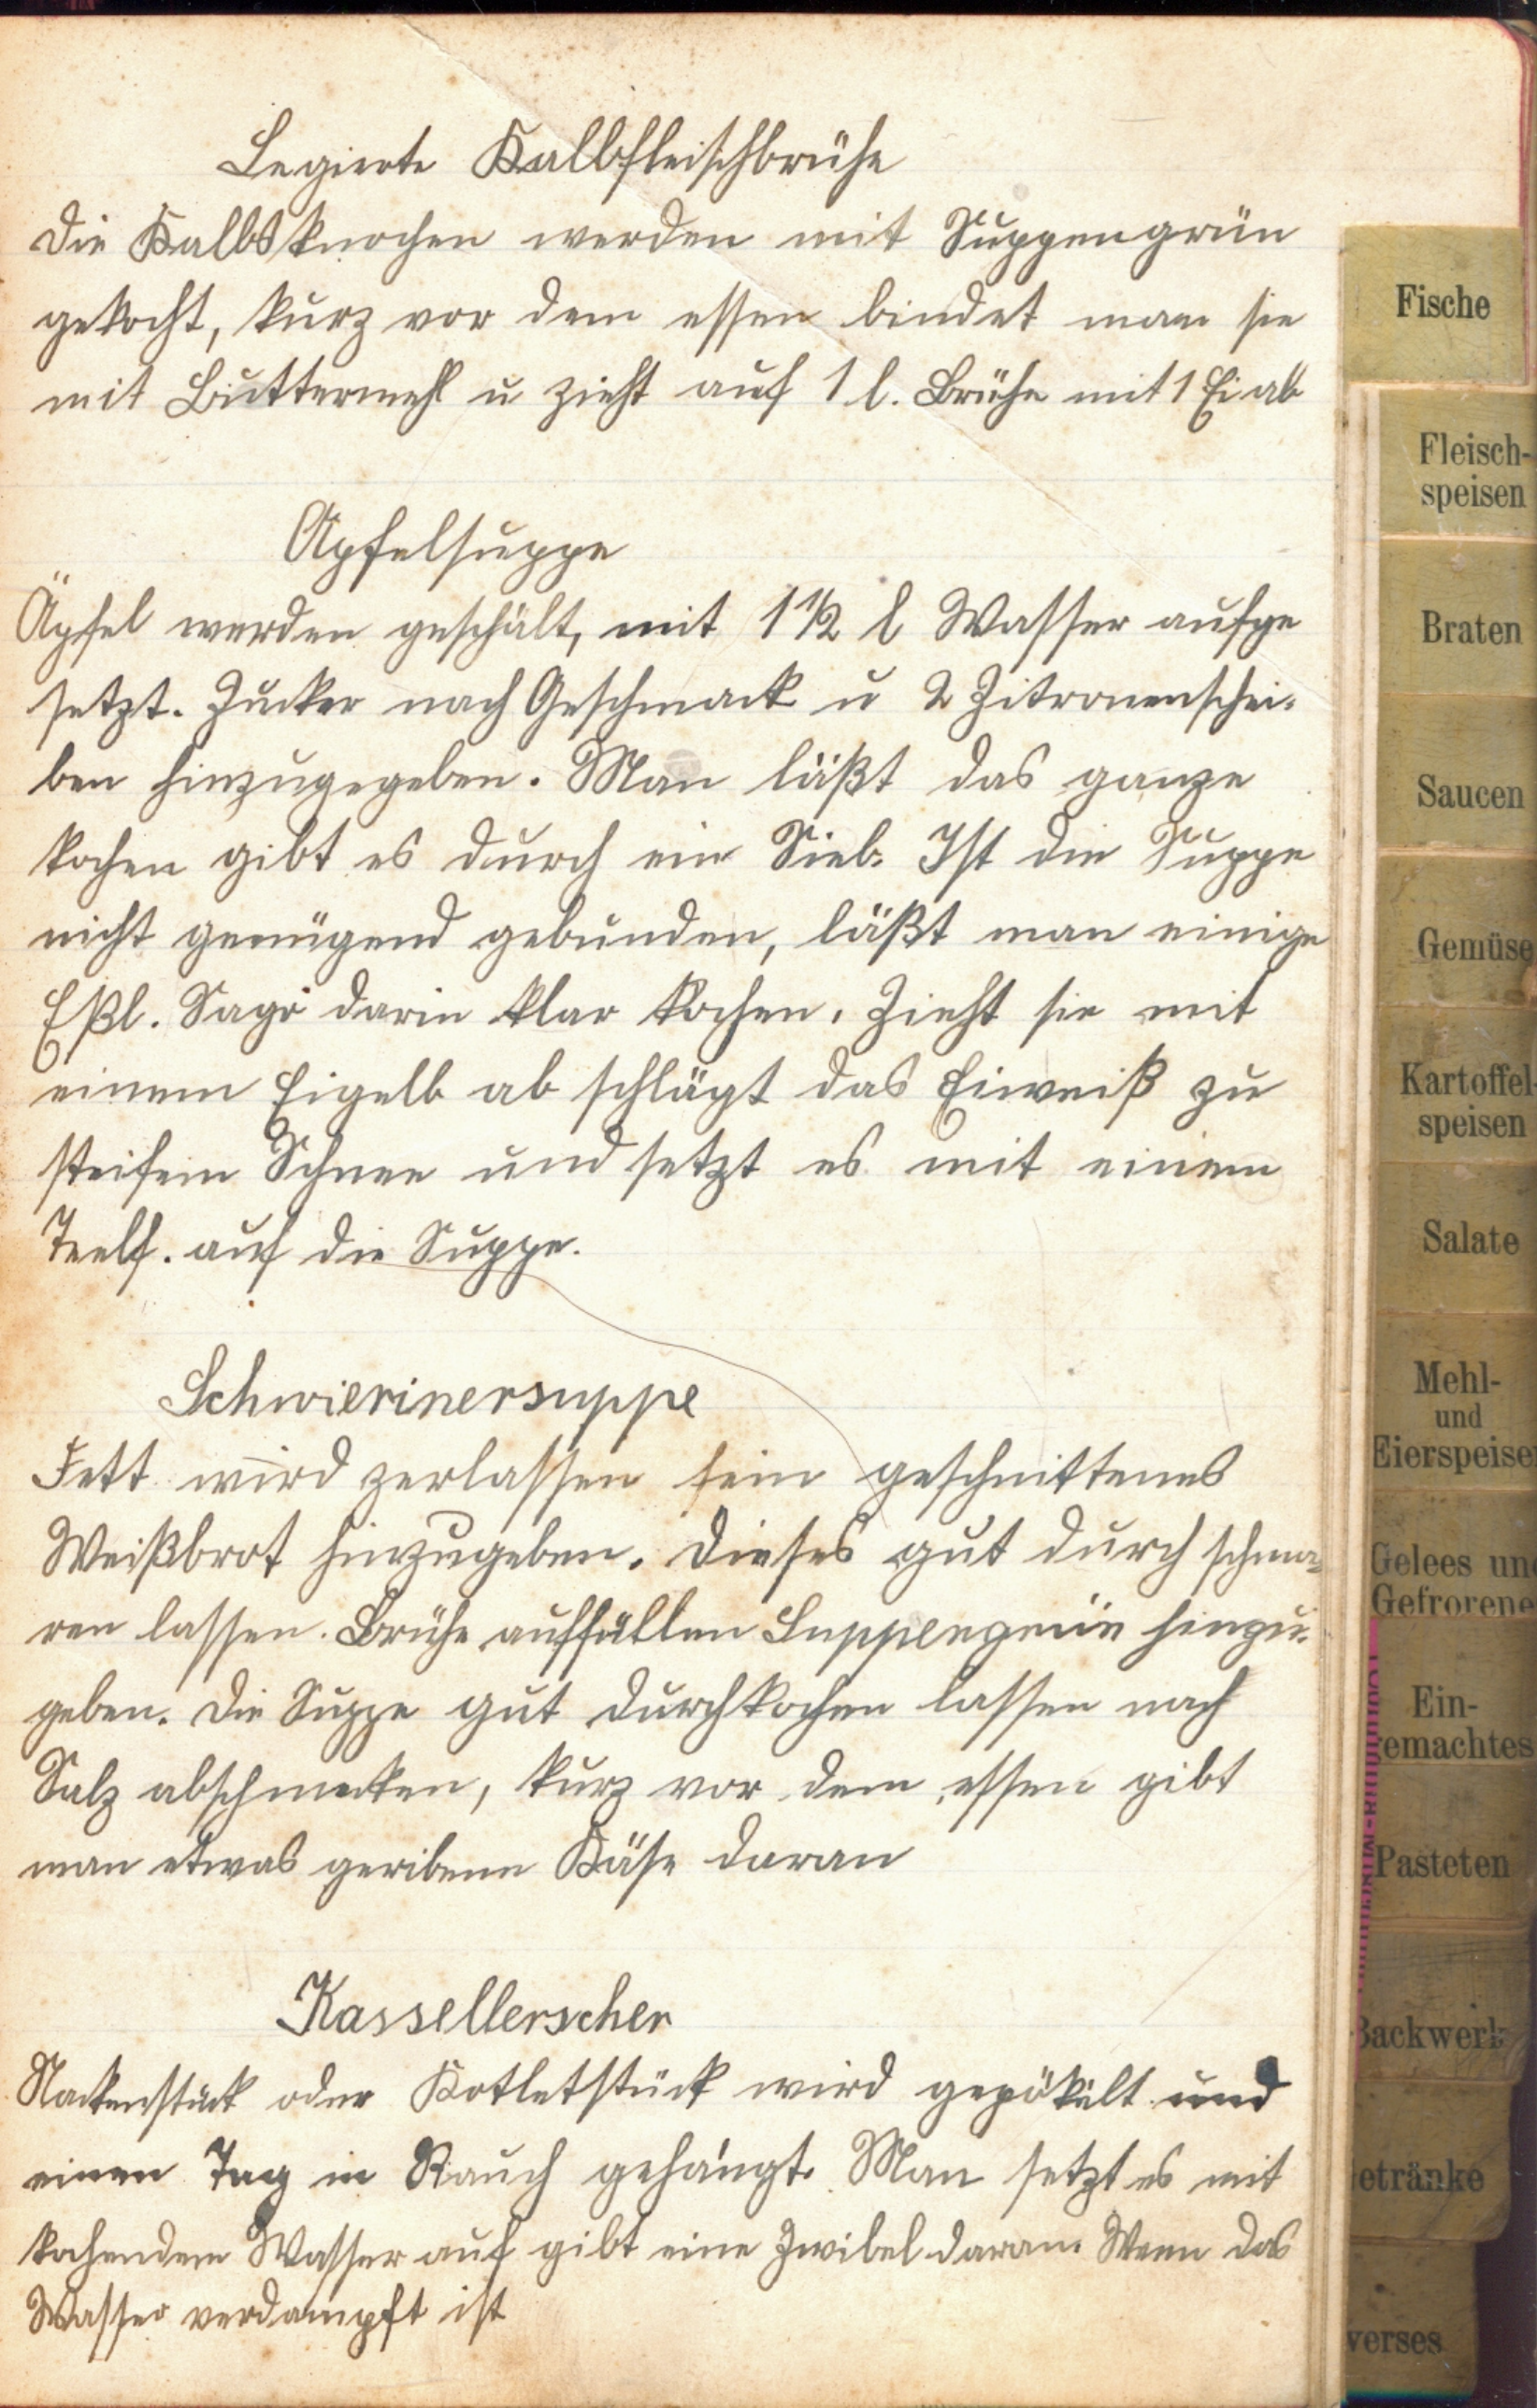 Legierte Kalbfleischbrühe
Die Kalbsknochen werden mit Suppengrün
gekocht, kurz vor dem essen bindet man sie
mit Buttermehl u zieht auf 1 l. Brühe mit 1 Ei ab
Apfelsuppe
Äpfel werden geschält, mit 1 1/2 l Wasser aufge
setzt. Zucker nach Geschmack u 2 Zitronenschei-
ben hinzugegeben. Man läßt das ganze
kochen gibt es durch ein Sieb. Ist die Suppe
nicht genügend gebunden, läßt man einige
Eßl. Sago darin klar kochen. Zieht sie mit
einem Eigelb ab schlägt das Eiweiß zu
steifem Schnee und setzt es mit einem
Teelf. auf die Suppe.
Schwierinersuppe
Fett wird zerlassen fein geschnittenes
Weißbrot hinzugeben. Dieses gut durch schmo-
ren lassen. Brühe auffüllen Suppengrün hinzu-
geben. Die Suppe gut durchkochen lassen nach
Salz abschmecken, kurz vor dem essen gibt
man etwas geribene Käse daran
Kassellerscher
Nackenstück oder Kotletstück wird gepökelt und
einen Tag in Rauch gehängt. Man setzt es mit
kochendem Wasser auf gibt eine Zwibel daran. Wenn das
Wasser verdampft ist
Fische
Fleisch-
speisen
Braten
Saucen
Gemüse
Kartoffel
speisen
Salate
Mehl-
und
Eierspeise
Gelees un
Gefrorene
Ein-
emachtes
Pasteten
Backwerk
etränke
verses